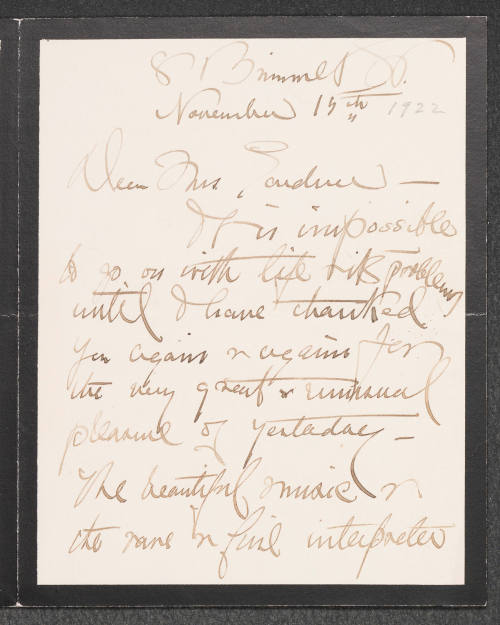 8 Brimmer St.
November 15th 1922
Dear Mrs. Gardner —
It is impossible
to go on with life & its problems
until I have thanked
you again & again for
the very great & unusual
pleasure of yesterday —
The beautiful music &
the rare & fine interpreter